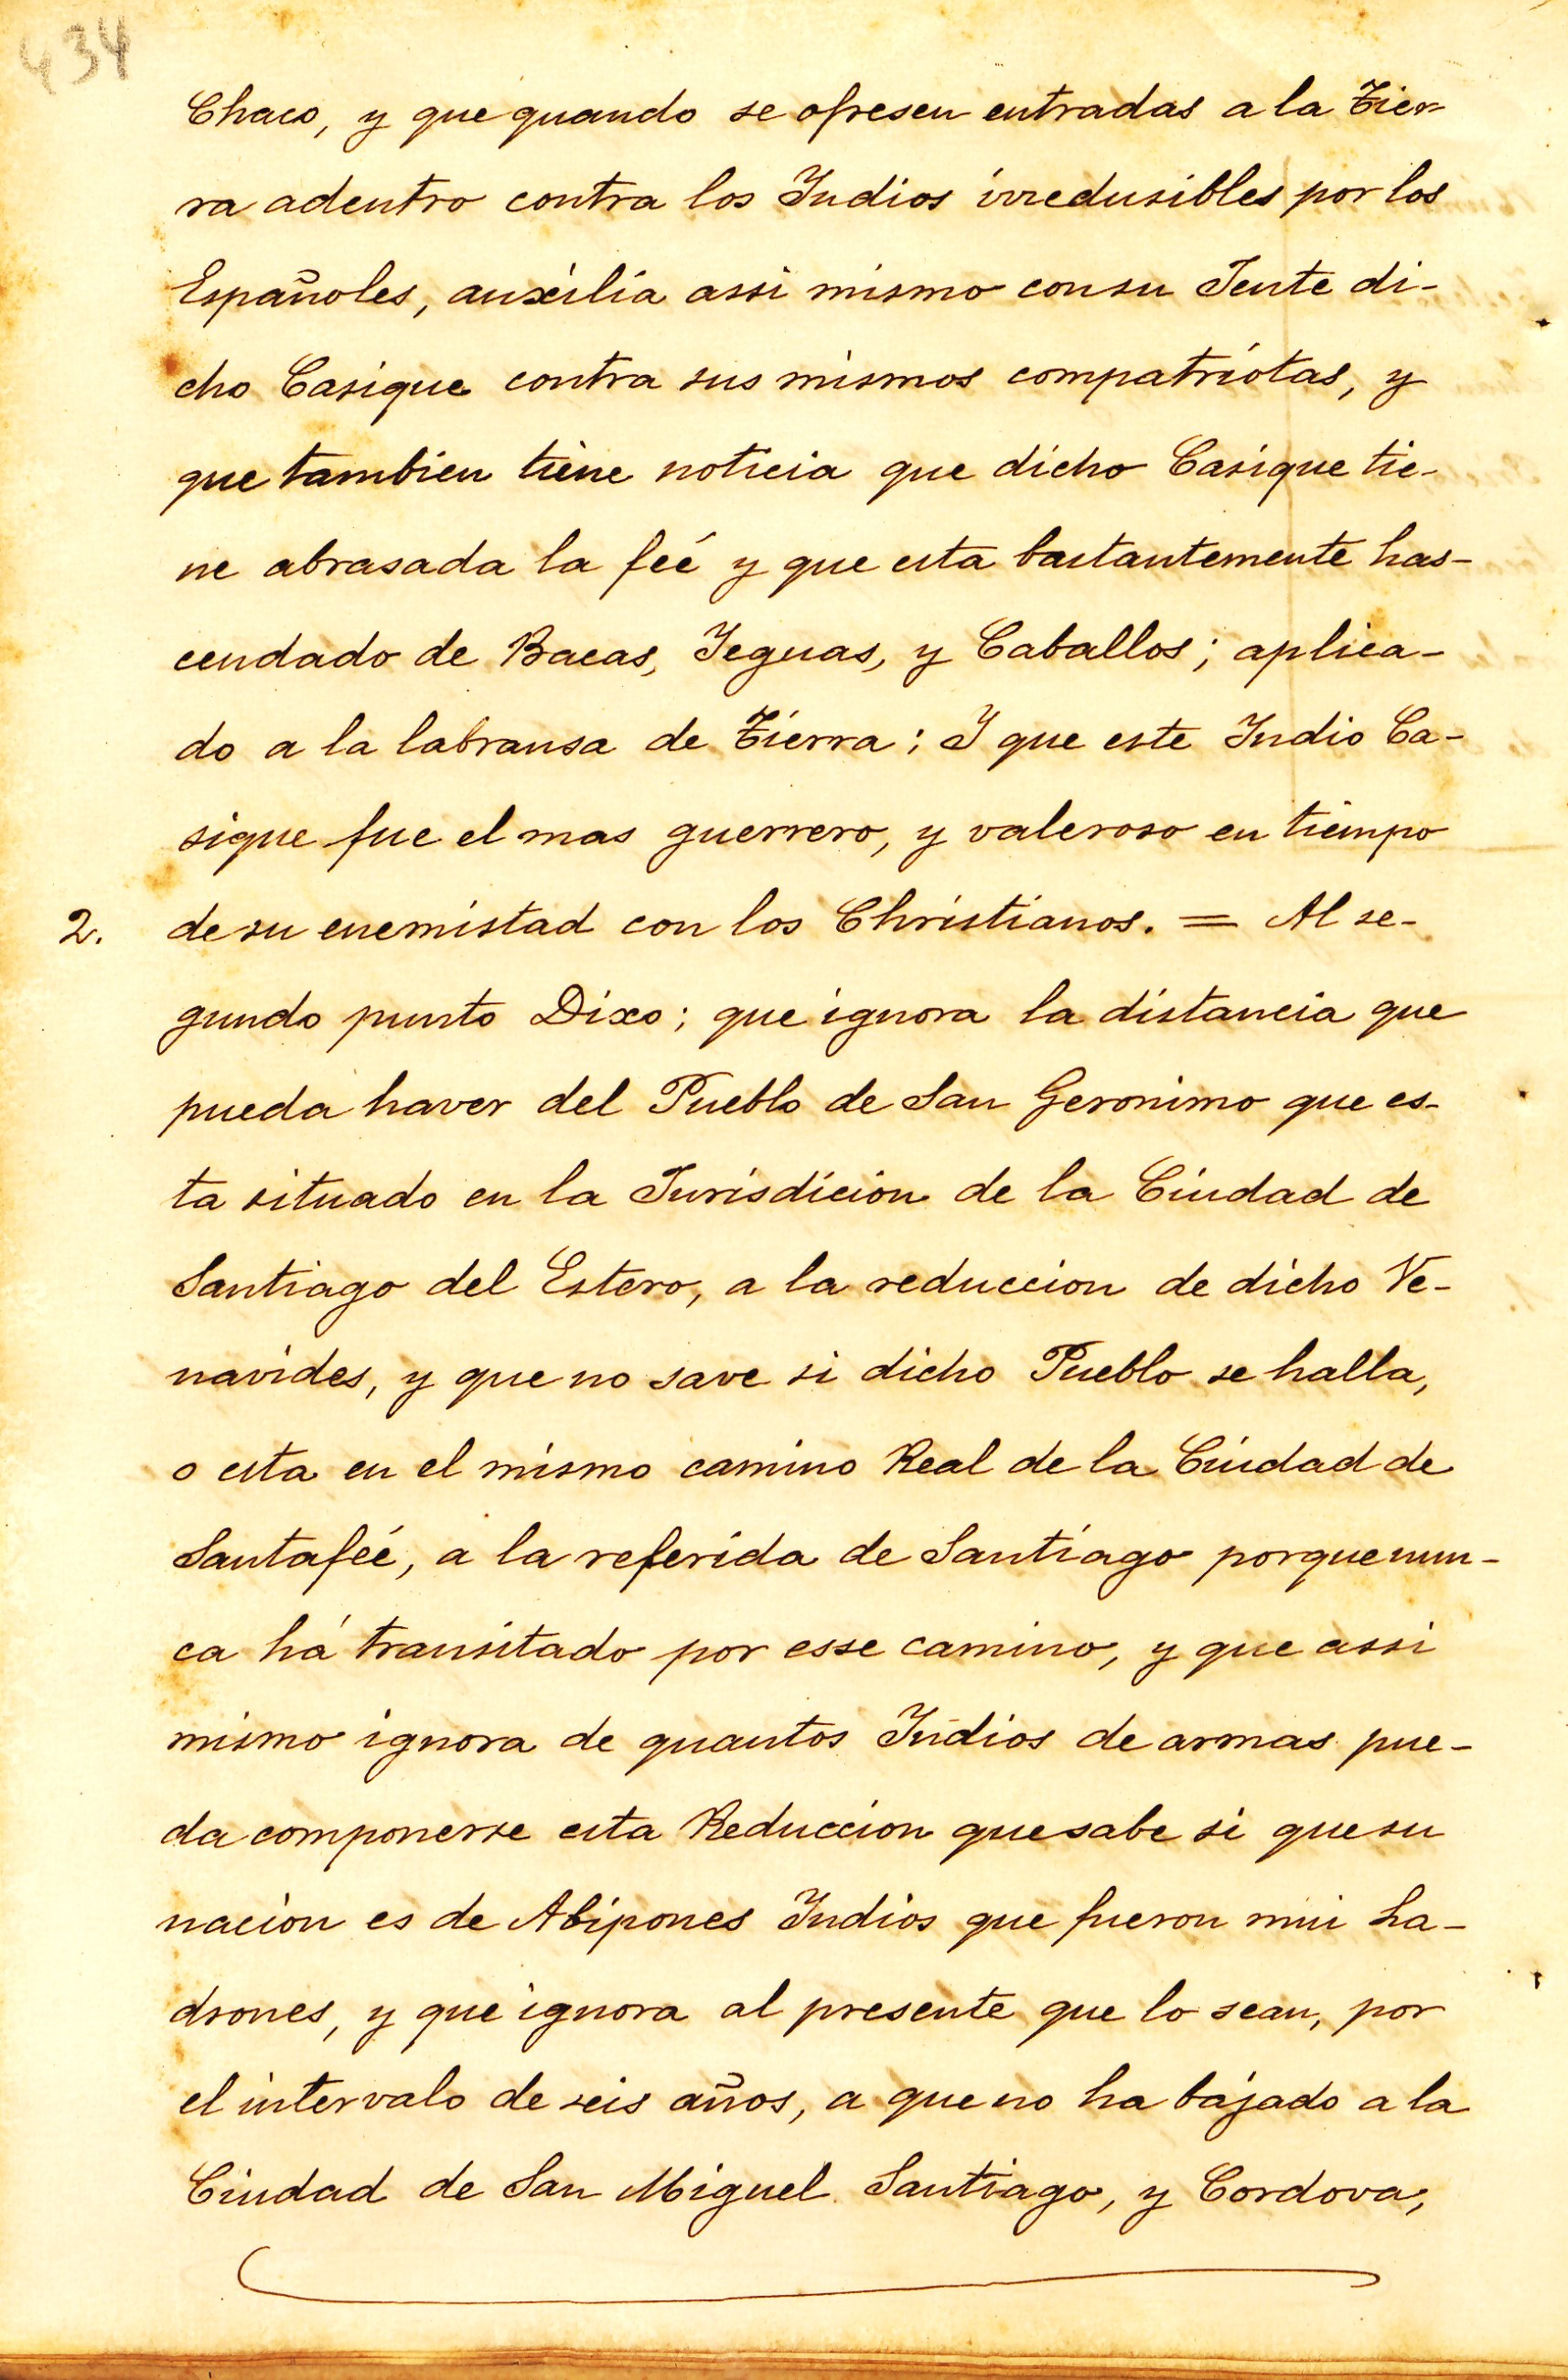 434
Chaco, y que quando se ofresen entradas a la Tier-
ra adentro contra los Indios irredusibles por los
Españoles, auxilia assi mismo con su Jente di-
cho Casique contra sus mismos compatriotas, y
que tambien tiene noticia que dicho Casique tie-
ne abrasada la feé y que esta bastantemente has-
cendado de Bacas, Yeguas, y Caballos; aplica-
do a la labransa de Tierra; I que este Indio Ca-
sique fue el mas guerrero, y valeroso en tiempo
2. de su enemistad con los Christianos. = Al se-
gundo punto Dixo; que ignora la distancia que
pueda haver del Pueblo de San Geronimo que es-
ta situado en la Jurisdicion de la Ciudad de
Santiago del Estero, a la reduccion de dicho Ve-
navides, y que no save si dicho Pueblo se halla,
o esta en el mismo camino Real de la Ciudad de
Santafeé, a la referida de Santiago porque nun-
ca há transitado por esse camino, y que assi
mismo ignora de quantos Indios de armas pue-
da componerse esta Reduccion que sabe si que su
nacion es de Abipones Indios que fueron mui La-
drones, y que ignora al presente que lo sean, por
el intervalo de seis años, a que no ha bajado a la
Ciudad de San Miguel Santiago, y Cordova,